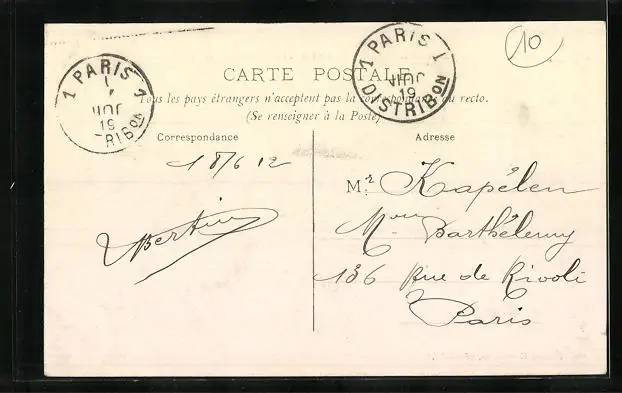 10
1 PARIS 1
JUIL
19
DISTRIBON
1 PARIS 1
JUIL
19
RIBON
CARTE POSTALE
Tous les pays étrangers n'acceptent pas la correspondance au recto.
(Se renseigner à la Poste)
Correspondance
Adresse
18/6 12
Bertin
Mr. Kapélen
Mon Barthélemy
136 Rue de Rivoli
Paris